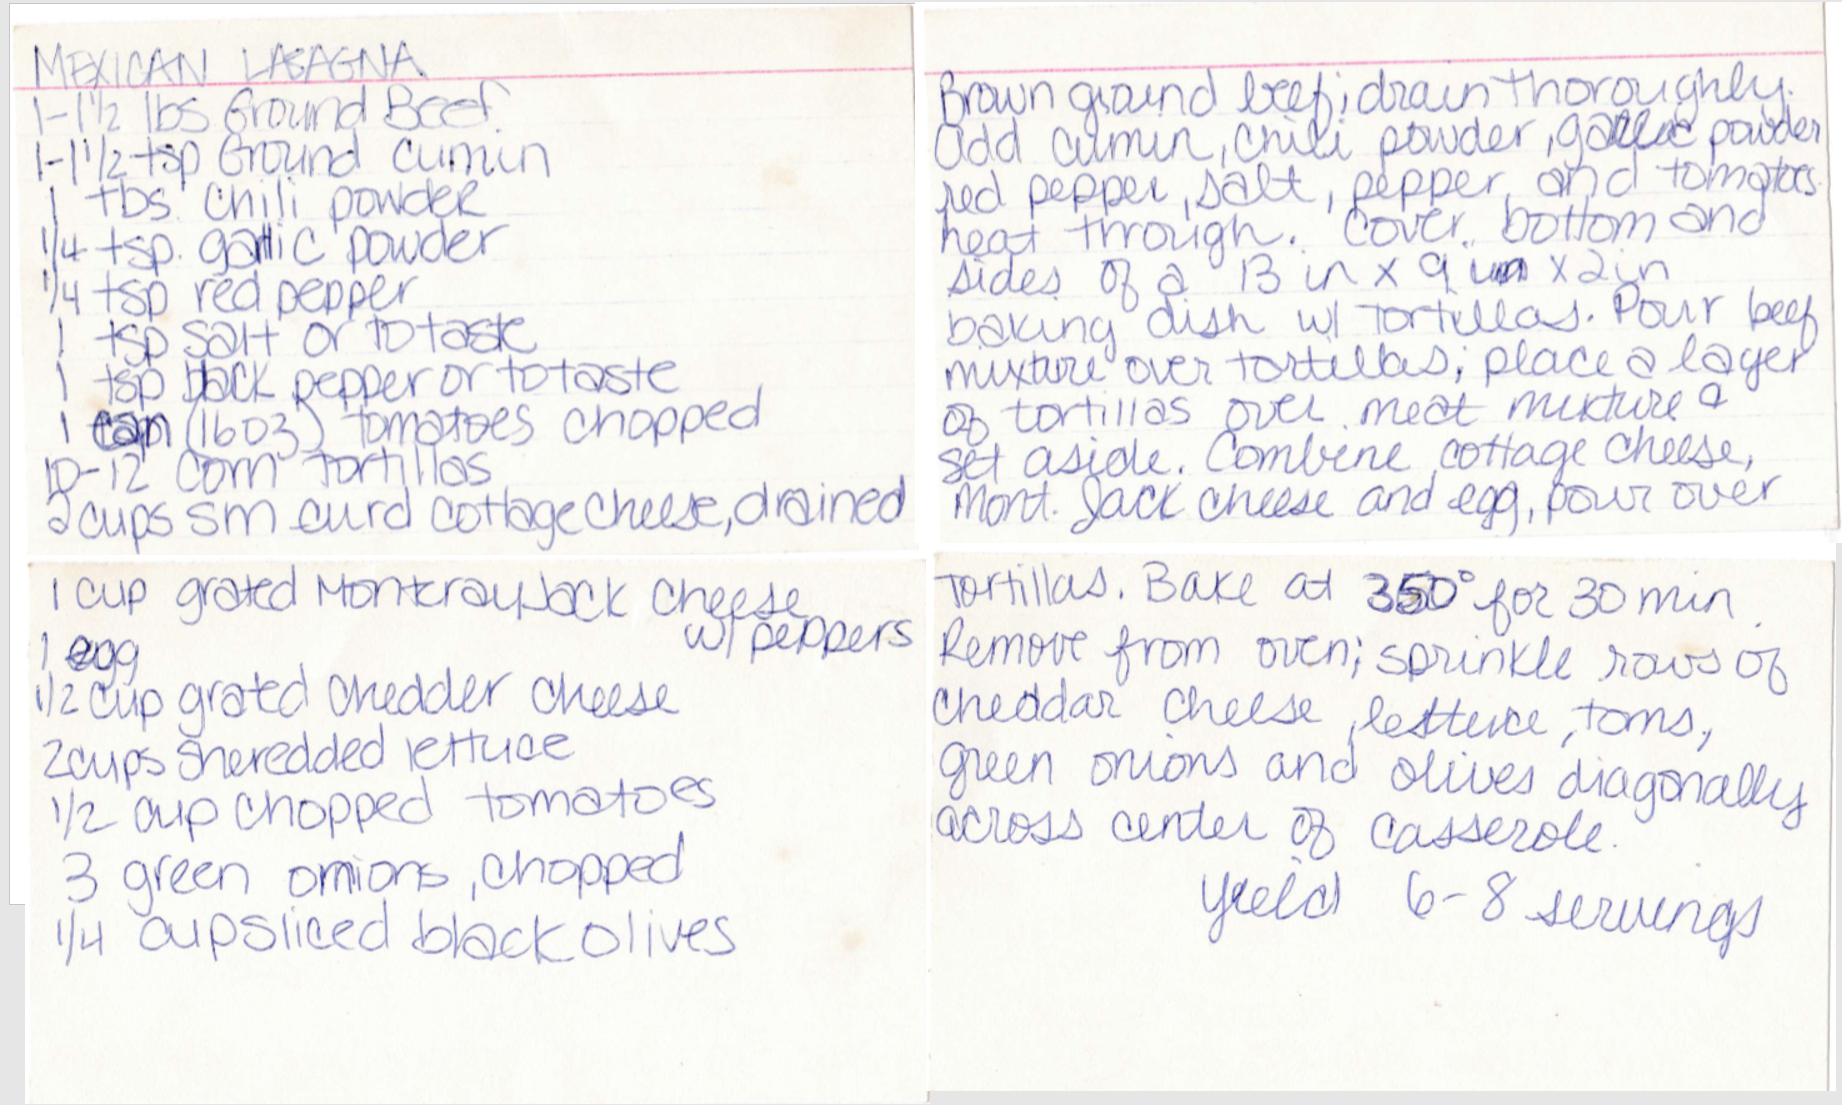 MEXICAN LASAGNA
1-1 1/2 lbs Ground Beef
1-1 1/2 tsp Ground Cumin
1 tbs. chili powder
1/4 tsp. garlic powder
1/4 tsp red pepper
1 tsp salt or to taste
1 tsp black pepper or to taste
1 can (16oz) tomatoes chopped
10-12 corn tortillas
2 cups sm curd cottage cheese, drained
1 cup grated Monteray Jack cheese
w/ peppers
1 egg
1/2 cup grated chedder cheese
2 cups sheredded lettuce
1/2 cup chopped tomatoes
3 green onions, chopped
1/4 cup sliced black olives
Brown ground beef; drain thoroughly.
Add cumin, chili powder, garlic powder
red pepper, salt, pepper, and tomatoes.
heat through. Cover bottom and
sides of a 13 in x 9 in x 2 in
baking dish w/ tortillas. Pour beef
mixture over tortillas; place a layer
of tortillas over meat mixture &
set aside. Combine cottage cheese,
Mont. Jack cheese and egg, pour over
tortillas. Bake at 350° for 30 min.
Remove from oven; sprinkle rows of
cheddar cheese, lettuce, toms,
green onions and olives diagonally
across center of casserole.
Yield 6-8 servings